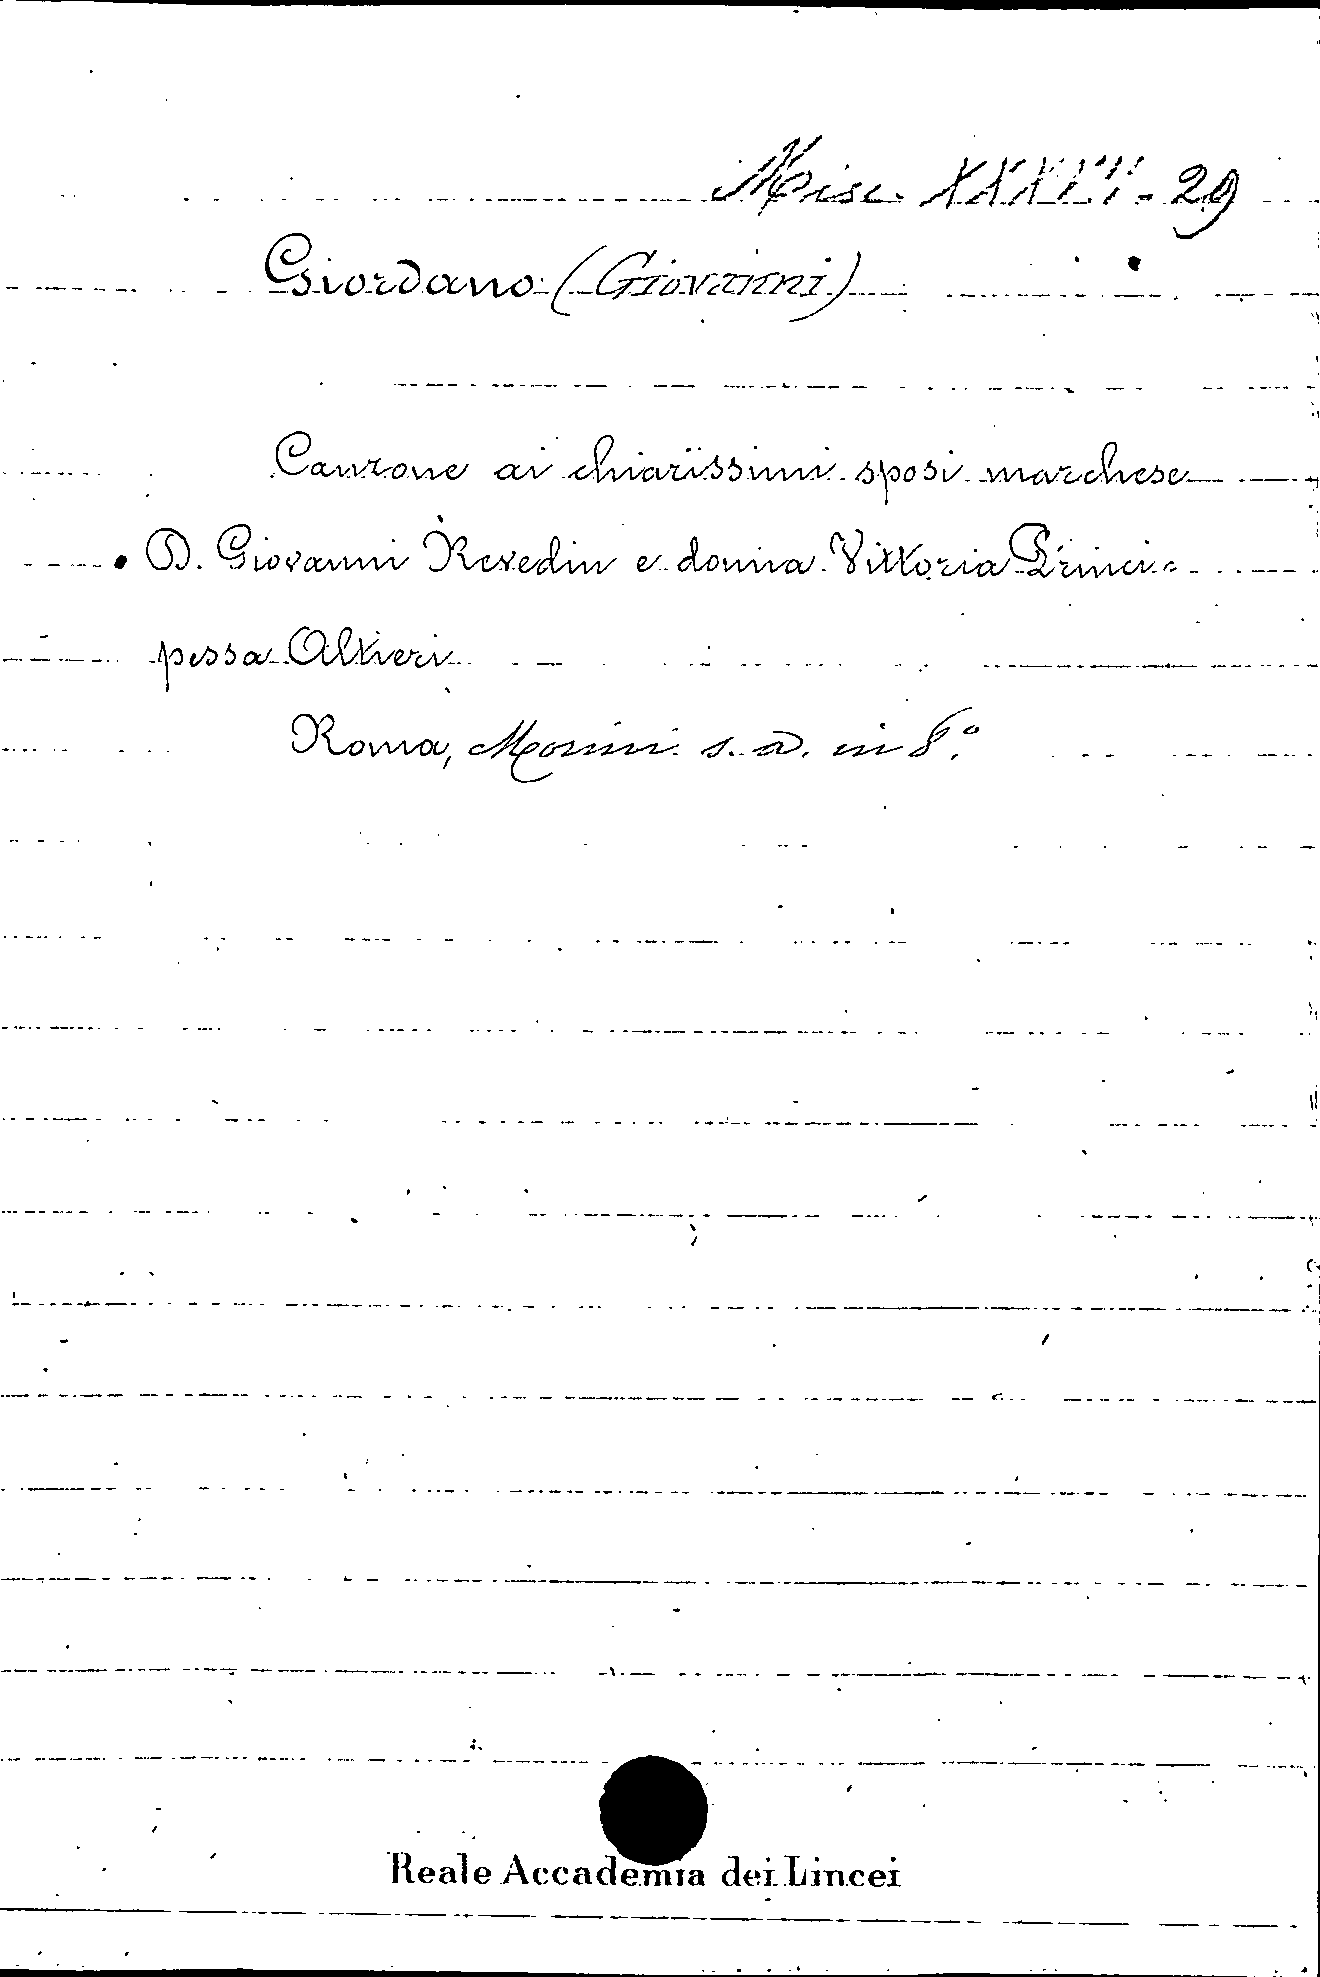 Misc. XXXVII - 29
Giordano (Giovanni)
Canzone ai chiarissimi sposi marchese
D. Giovanni Revedin e donna Vittoria Princi-
pessa Altieri
Roma, Monini s. a. in 8.°
Reale Accademia dei Lincei